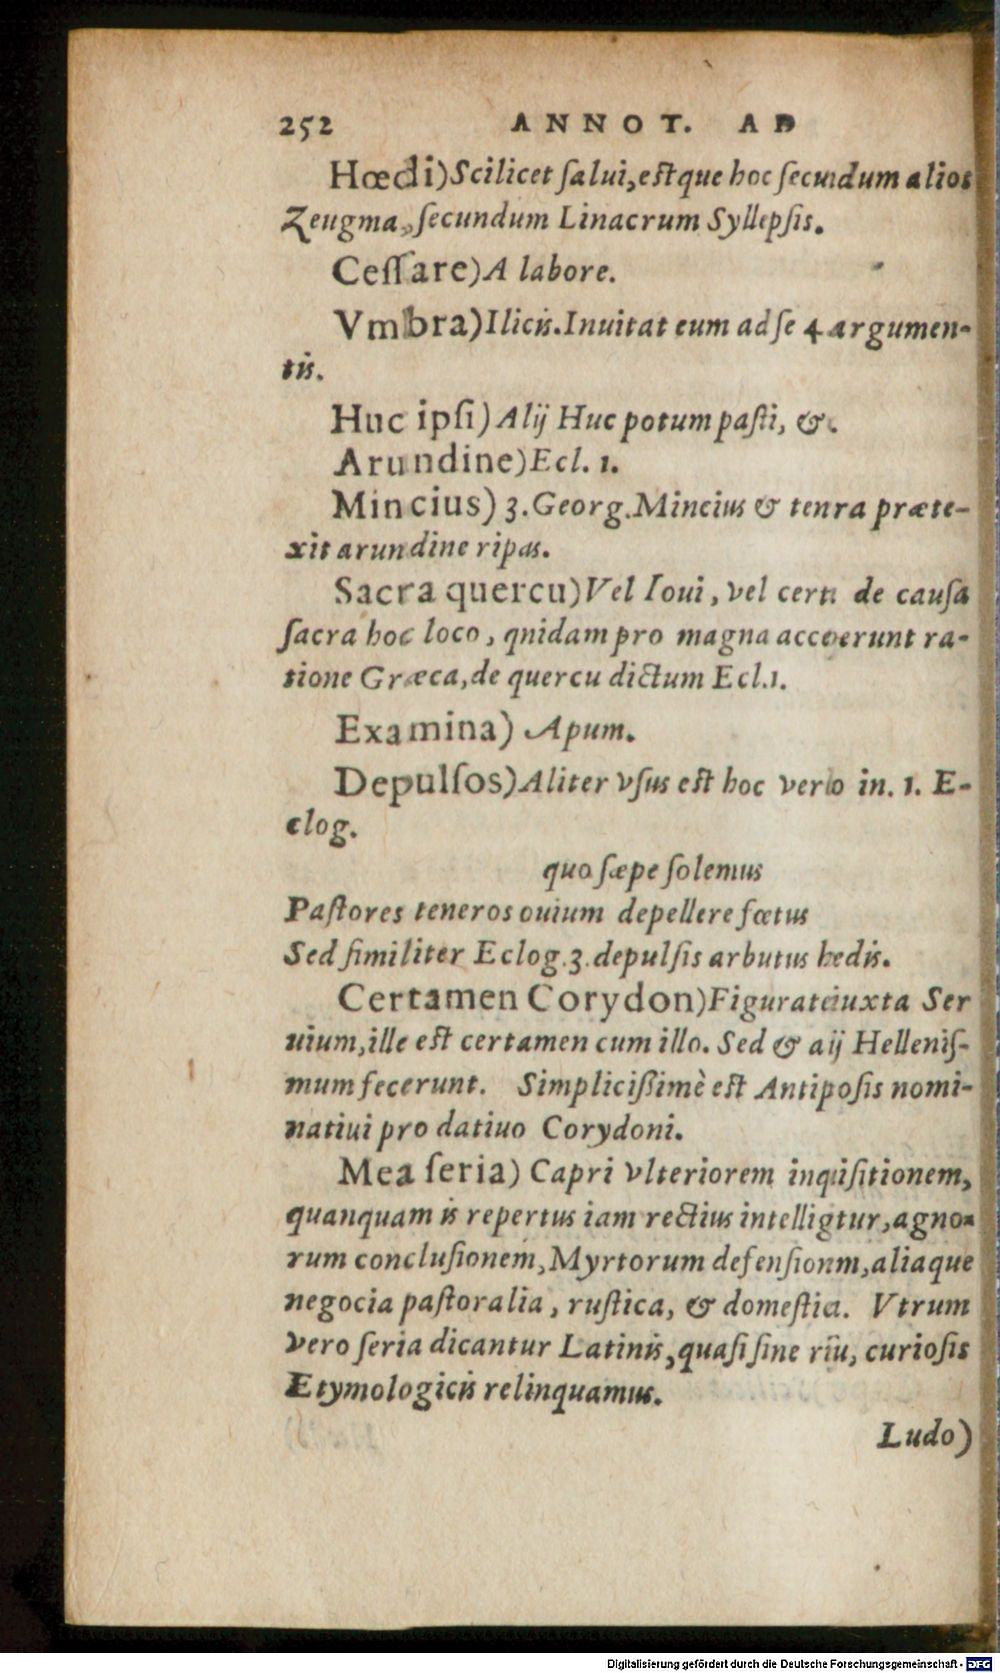 252 ANNOT. AD
Hœdi) Scilicet ſalui, eſtque hoc ſecundum alios
Zeugma, ſecundum Linacrum Syllepſis.
Ceſſare) A labore.
Vmbra) Ilicis. Inuitat eum ad ſe 4 argumen-
tis.
Huc ipſi) Alij Huc potum paſti, &.
Arundine) Ecl. 1.
Mincius) 3. Georg. Mincius & tenra præte-
xit arundine ripas.
Sacra quercu) Vel Ioui, vel certa de cauſa
ſacra hoc loco, qnidam pro magna acceperunt ra-
tione Græca, de quercu dictum Ecl. 1.
Examina) Apum.
Depulſos) Aliter vſus eſt hoc verbo in. 1. E-
clog.
quo ſæpe ſolemus
Paſtores teneros ouium depellere fœtus
Sed ſimiliter Eclog. 3. depulſis arbutus hedis.
Certamen Corydon) Figurate iuxta Ser
uium, ille eſt certamen cum illo. Sed & aij Helleniſ-
mum fecerunt. Simplicißimè eſt Antipoſis nomi-
natiui pro datiuo Corydoni.
Mea ſeria) Capri vlteriorem inquiſitionem,
quanquam is repertus iam rectius intelligtur, agno-
rum concluſionem, Myrtorum defenſionm, aliaque
negocia paſtoralia, ruſtica, & domeſtica. Vtrum
vero ſeria dicantur Latinis, quaſi ſine riſu, curioſis
Etymologicis relinquamus.
Ludo)
Digitalisierung gefördert durch die Deutsche Forschungsgemeinschaft - DFG